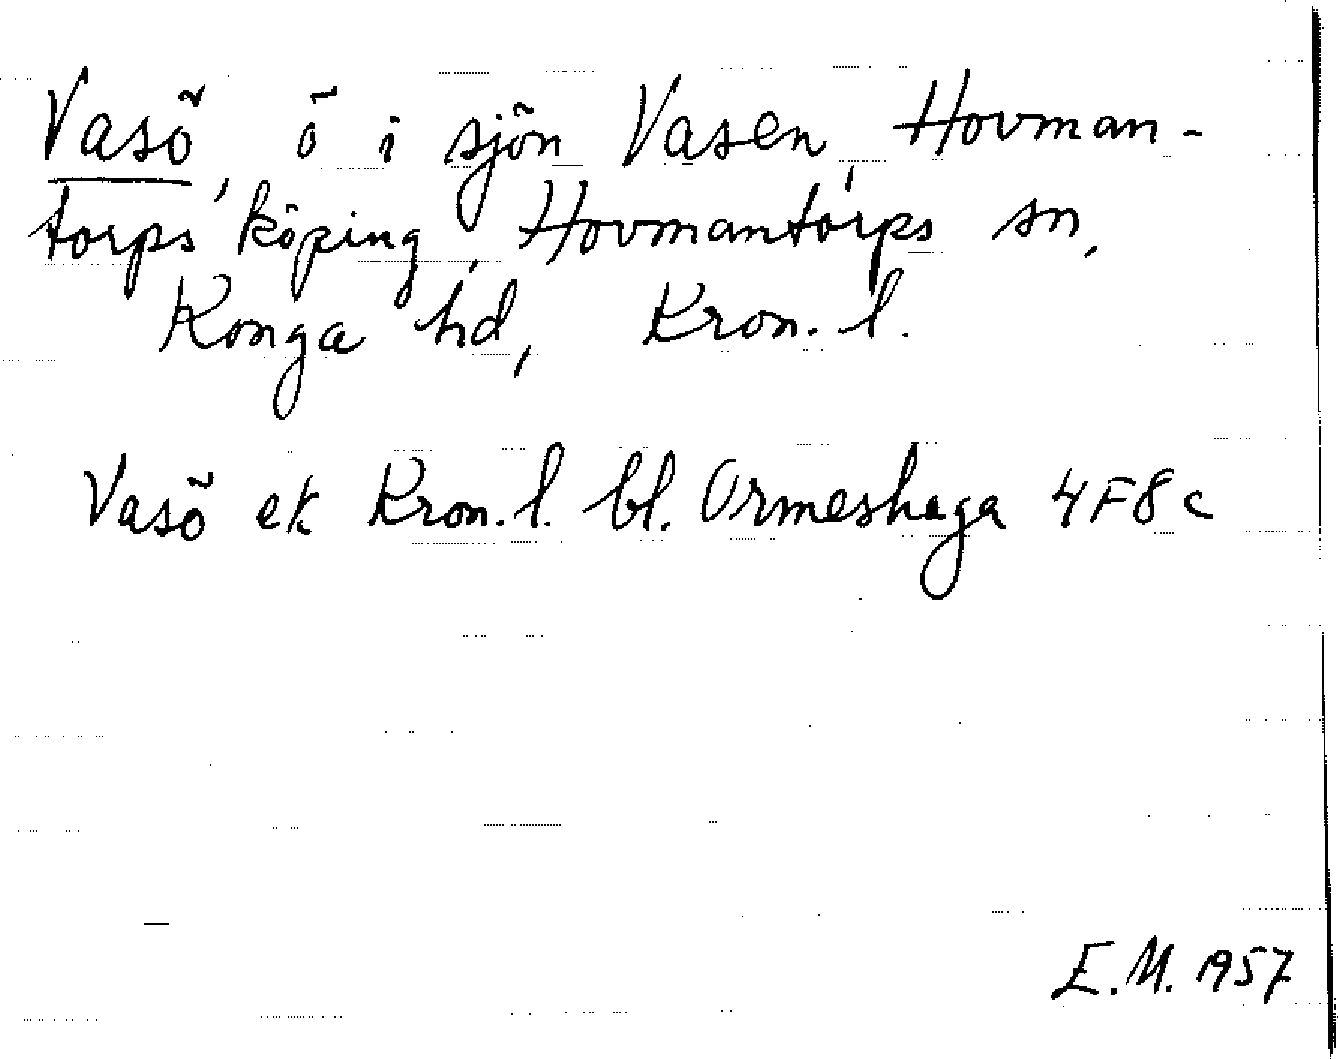 Vasö, ö i sjön Vasen, Hovman-
torps köping, Hovmantorps sn,
Konga hd, Kron. l.
Vasö ek Kron. l. bl. Ormeshaga 4F8c
E.M. 1957